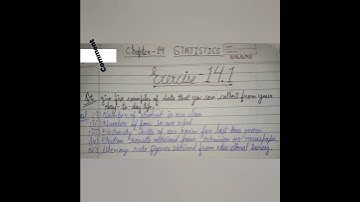 Comment
Chapter-14 STATISTICS
Exercise-14.1
Q1. Give five examples of data that you can collect from your
day-to-day life.
(i) Number of student in our class
(ii) Number of fans in our school
(iii) Electricity bills of our house for last two years
(iv) Election results obtained from television or newspaper
(v) Literacy rate figures obtained from educational survey.